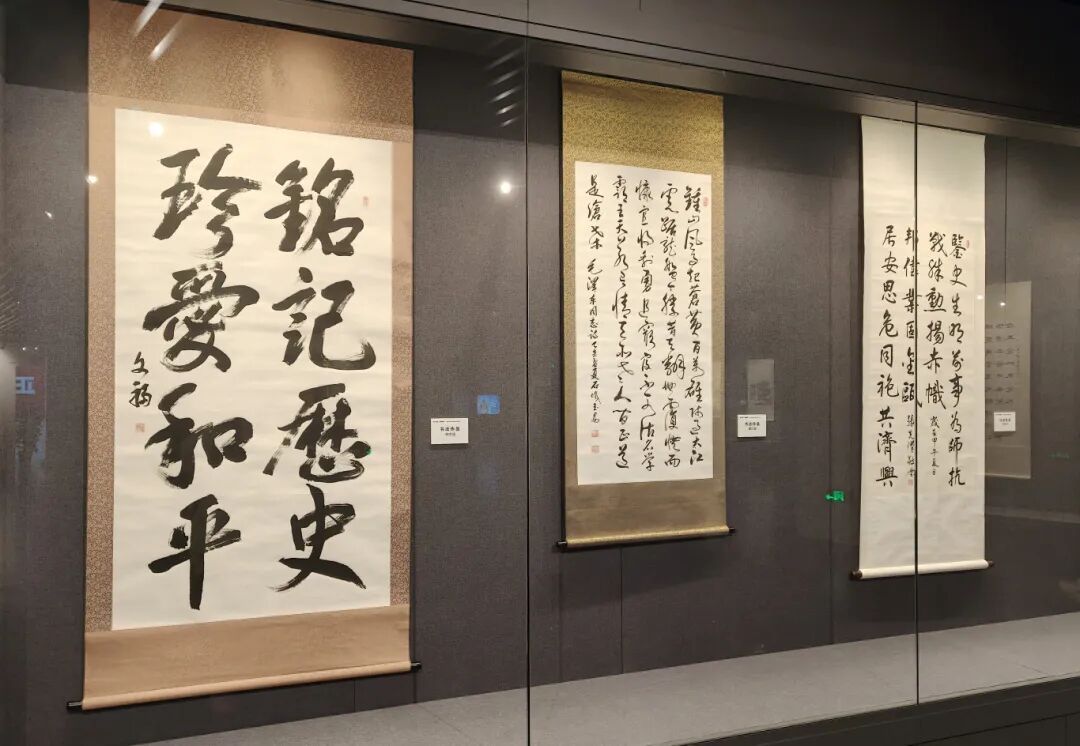 銘記歷史
珍愛和平
书法作品
鍾山風雨起蒼黃百萬雄師過大江
虎踞龍盤今勝昔天翻地覆慨而
慷宜將剩勇追窮寇不可沽名學
霸王天若有情天亦老人間正道
是滄桑 毛澤東同志詩
书法作品
鑒史生明前事為師抗
戰殊勳揚赤幟
居安思危同袍共濟興
邦偉業固金甌